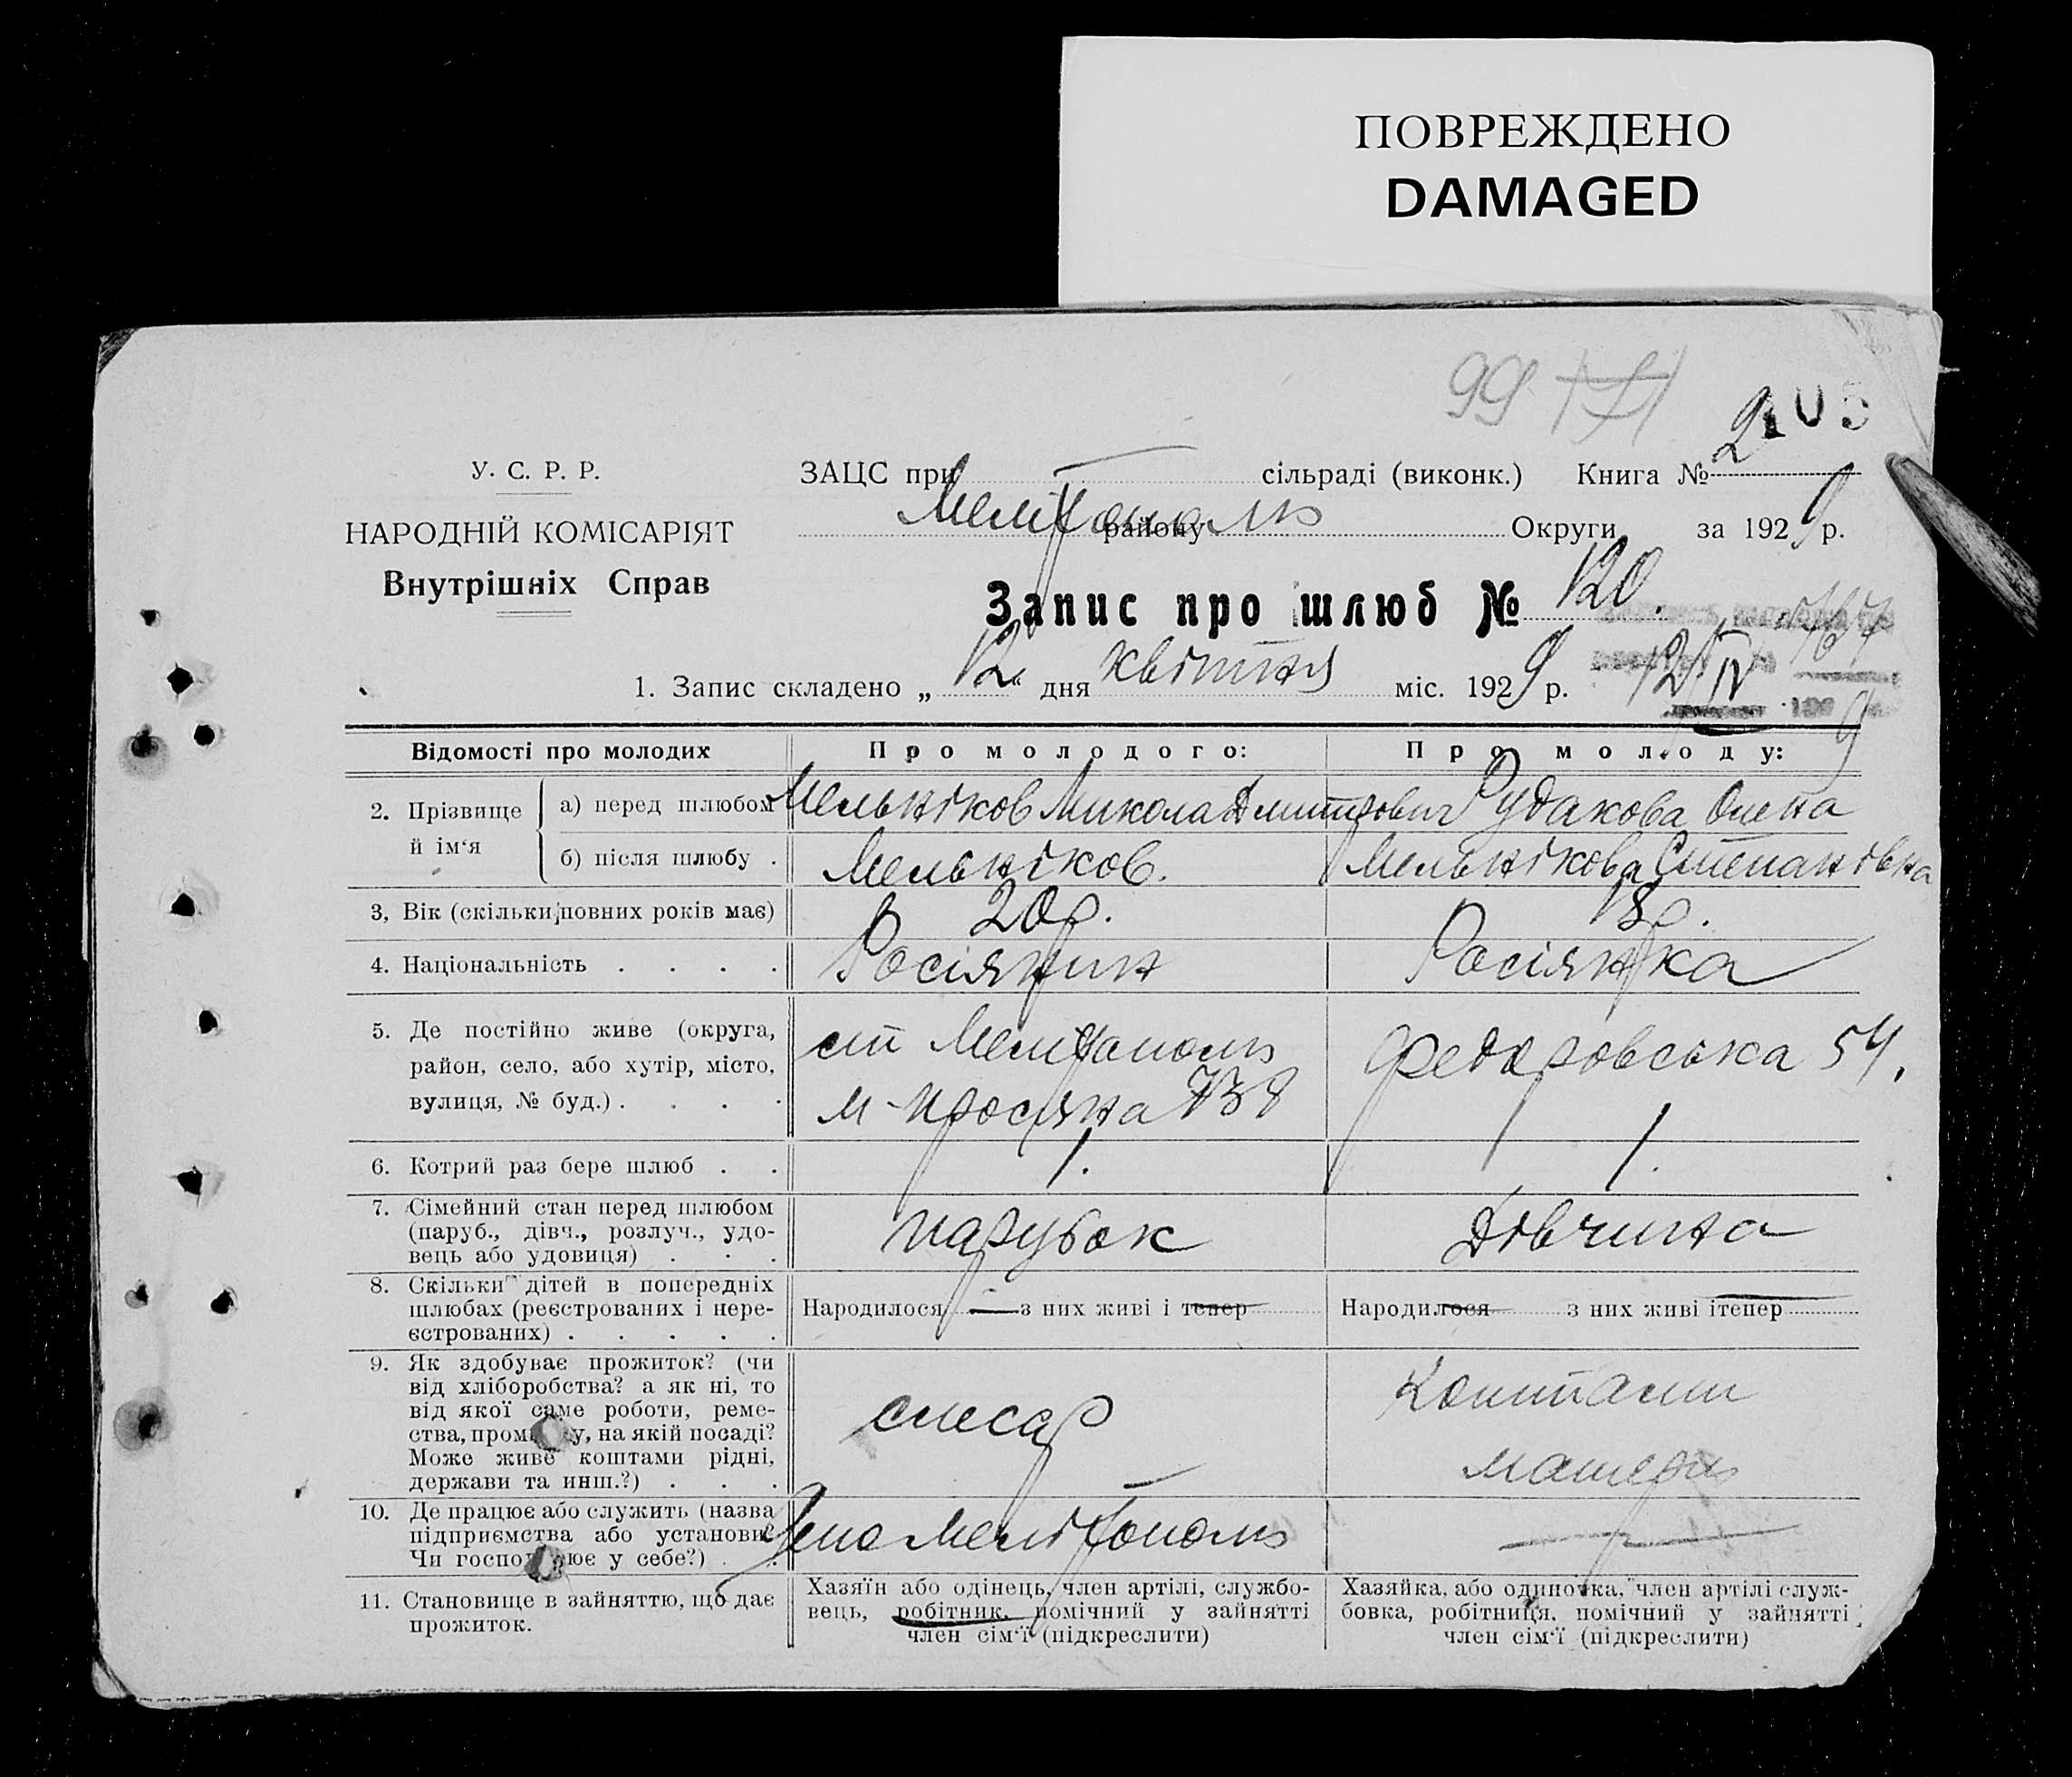 ПОВРЕЖДЕНО
DAMAGED
99 171
205
У. С. Р. Р.
НАРОДНІЙ КОМІСАРІЯТ
Внутрішніх Справ
ЗАЦС при сільраді (виконк.) Книга № 2
Мелітополь району Округи за 1929 р.
Запис про шлюб № 120.
1. Запис складено „12“ дня квітня міс. 1929 р.
12/IV
Відомості про молодих
Про молодого:
Про молоду:
2. Прізвище й ім‘я
а) перед шлюбом
Мельніков Микола Дмитрович
Рудакова Олена
б) після шлюбу .
Мельніков.
Мельнікова Степанівна
3, Вік (скільки повних років має)
20 р.
18 р.
4. Національність . . . .
Росіянин
Росіянка
5. Де постійно живе (округа,
район, село, або хутір, місто,
вулиця, № буд.) . . . .
ст Мелітополь
Федоровська 54.
6. Котрий раз бере шлюб . .
1.
1.
7. Сімейний стан перед шлюбом
(паруб., дівч., розлуч., удо-
вець або удовиця) . . .
парубок
Дівчина
8. Скільки дітей в попередніх
шлюбах (реєстрованих і нере-
єстрованих) . . . . .
Народилося — з них живі і тепер
Народилося з них живі ітепер
9. Як здобуває прожиток? (чи
від хліборобства? а як ні, то
від якої саме роботи, реме-
ства, пром у, на якій посаді?
Може живе коштами рідні,
держави та инш.?) . . .
слесар
Коштами
матери
10. Де працює або служить (назва
підприємства або установи?
Чи госпо ює у себе?) . .
Депо Мелітополь
—
11. Становище в зайняттю, що дає
прожиток.
Хазяїн або одінець, член артілі, службо-
вець, робітник, помічний у зайнятті
член сім‘ї (підкреслити)
Хазяйка, або одиночка, член артілі служ-
бовка, робітниця, помічний у зайнятті
член сім‘ї (підкреслити)